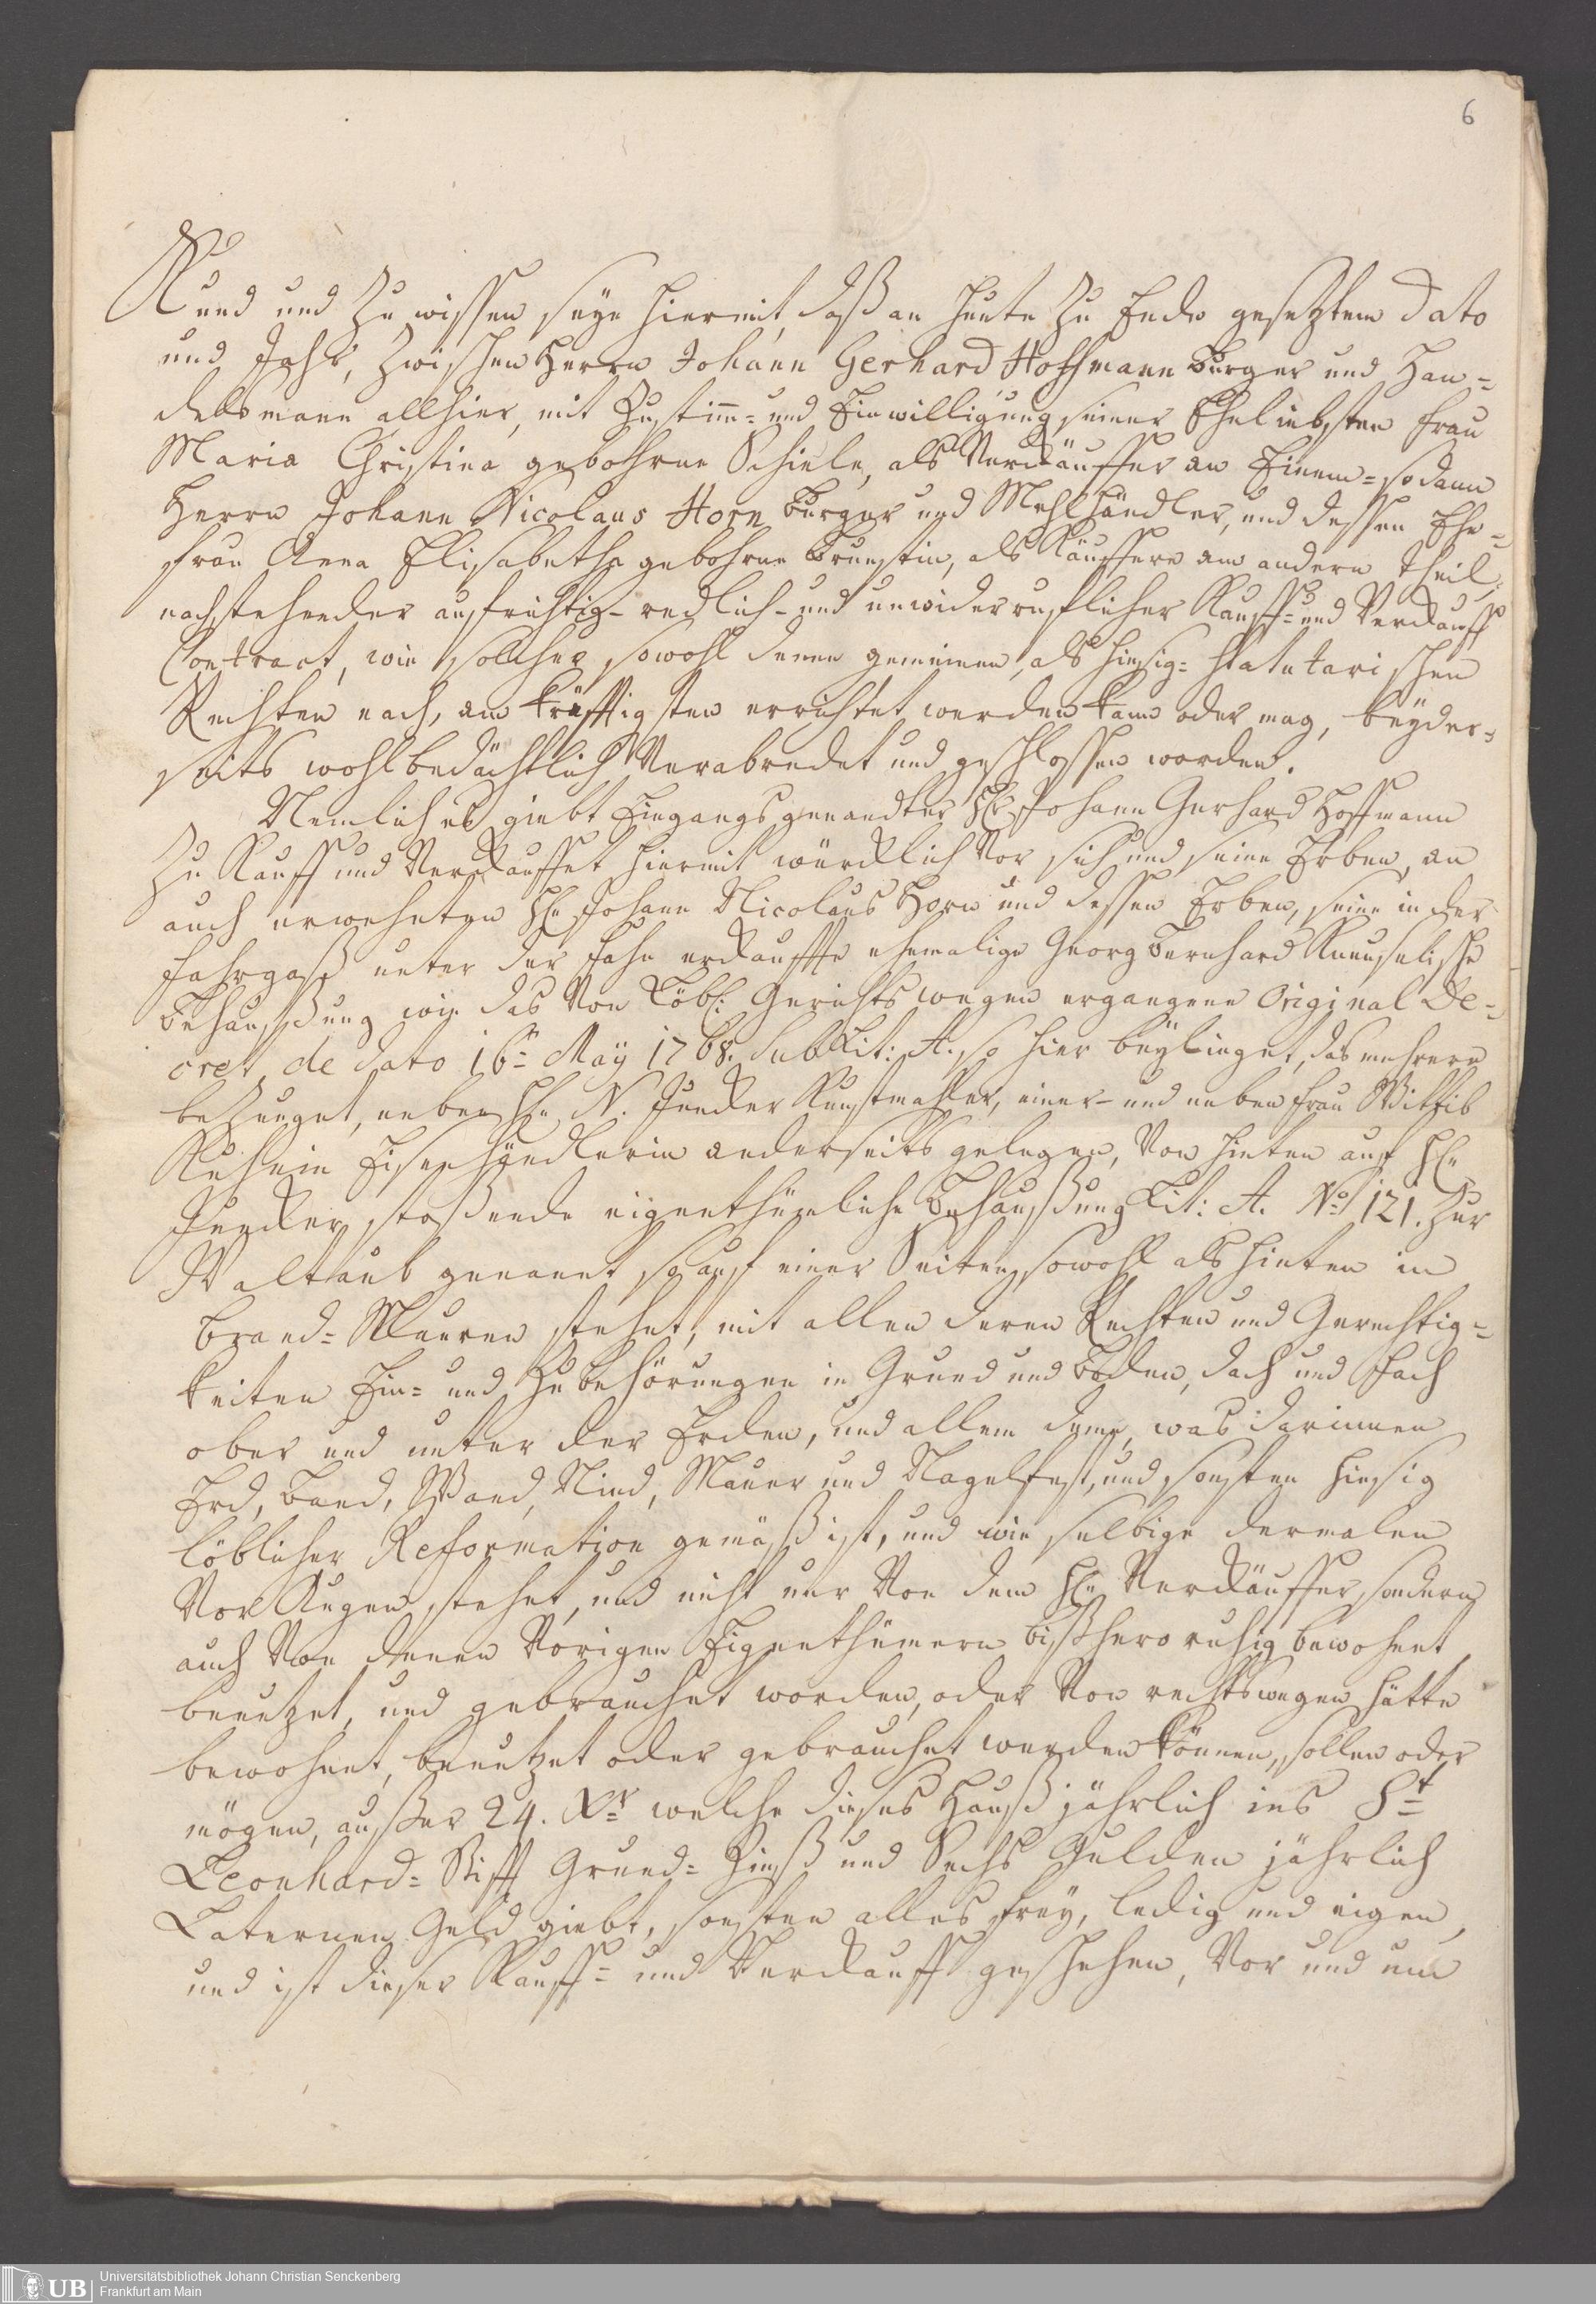 6
Kund und Zu wissen seye hiermit, daß an heute Zu Ende gesetztem Dato
und Jahr, Zwischen Herrn Johann Gerhard Hoffmann Burger und Han-
delsmann allhier, mit Zustimm- und Einwilligung seiner Eheliebsten Frau
Maria Christina gebohrne Schiele, als Verkäuffer an Einem- sodann
Herrn Johann Nicolaus Horn Burger und Mehlhändler, und dessen Ehe-
frau Anna Elisabetha gebohrne Brunstin, als Käuffere am andern Theil,
nachstehender aufrichtig- redlich- und unwiderrufflicher Kauff- und Verkauff
Contract, wie solcher sowohl denen gemeinen, als hiesig- Statutarischen
Rechten nach, am kräfftigsten errichtet werden kann oder mag, beyder-
seits wohlbedächtlich Verabredet und geschlossen worden.
Nemlich es giebt Eingangs genandter Hr. Johann Gerhard Hoffmann
Zu Kauff und Verkauffet hiermit würcklich Vor sich und seine Erben, an
auch erwehnten Hn. Johann Nicolaus Horn und dessen Erben, seine in der
Fahrgaß unter der Fahr erkauffte ehemalige Georg Bernhard
Behaußung wie das Von Löbl: Gerichts wegen ergangene Original De-
cret de dato 16n May 1768. sub Lit: A. so hier beylieget, das mehrere
beZeuget, neben Hn. N. Juncker Kunstmahler, einer- und neben Frau Wittib
Eisenhändlerin anderseits gelegen, Von hinten auf Hn.
Juncker stoßende eigenthümliche Behaußung Lit: A. No. 121. Zur
Waltaub genannt so auf einer Seiten, sowohl als hinten in
Brand- Mauren stehet, mit allen deren Rechten und Gerechtig-
keiten Ein- und Zubehörungen in Grund und Boden, Dach und Fach
ober und unter der Erden, und allem deme, was darinnen
Erd, Band, Wand, Nied, Mauer und Nagelfest, und sonsten hiesig
löblicher Reformation gemäß ist, und wie selbige dermalen
Vor Augen stehet, und nicht nur Von dem Hn. Verkäuffer sondern
auch Von denen Vorigen Eigenthümern bißhero ruhig bewohnt,
benutzet, und gebrauchet worden, oder Von rechtswegen hätte
bewohnt, benutzet oder gebrauchet werden können, sollen oder
mögen, außer 24. Xr. welche dieses Hauß jährlich ins St.
Leonhard- Stifft Grund- Zinß und Sechs Gulden jährlich
Laternen Geld giebt, sonsten alles frey, ledig und eigen,
und ist dieser Kauff- und Verkauff geschehen, Vor und um
UB
Universitätsbibliothek Johann Christian Senckenberg
Frankfurt am Main